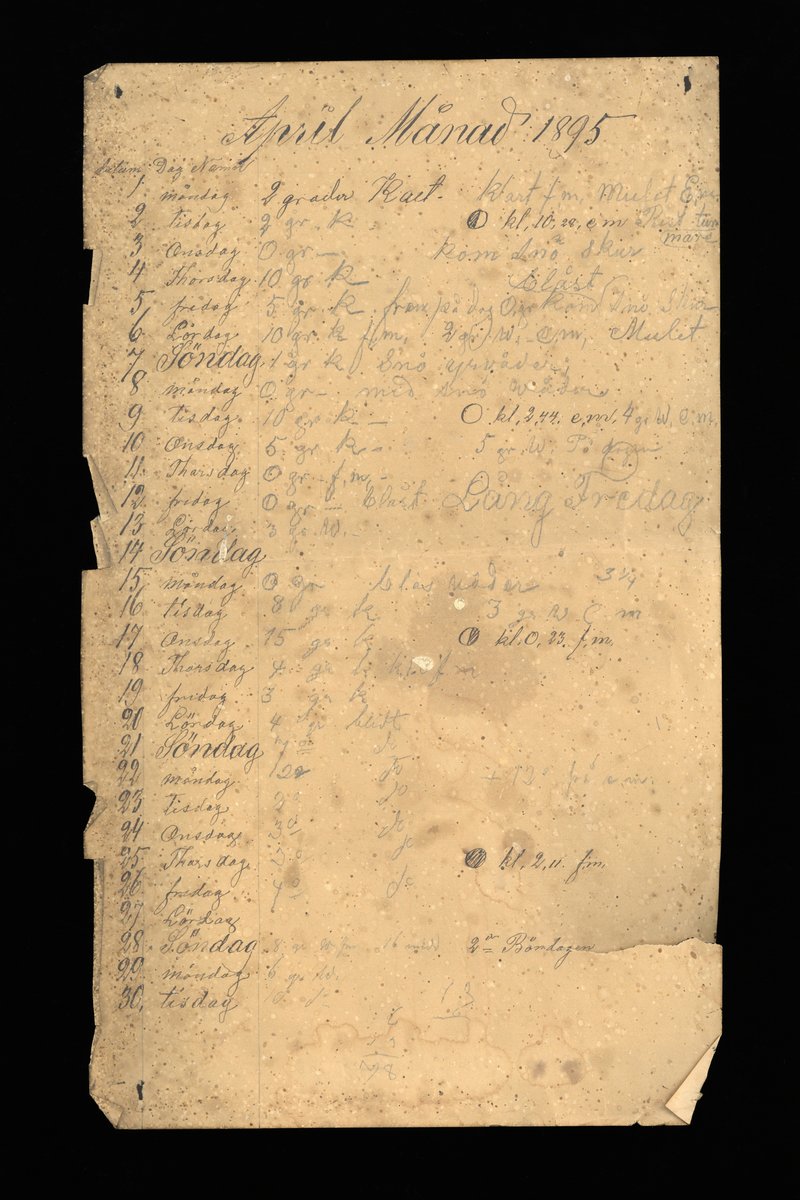 April Månad 1895
Datum Dag Namn
1 måndag 2 grader Kalt. Klart f m, Mulet E.m.
2 tisdag 2 gr. k kl, 10, 22, e m
3 Onsdag 0 gr — kom Snö Skur
4 Thorsdag 10 gr k blåst
5 fredag 5 gr k fram på dag 0 gr kom Snö
6 Lördag 10 gr. k f m, 2 gr. W. e m, Mulet
7 Söndag 1 gr k Snö
8 måndag 0 gr — med snö
9 tisdag 10 gr k — kl, 2,44. e, m, 4 gr W, E. m.
10 Onsdag 5 gr k — 5 gr. W. På
11 Tharsdag 0 gr — f, m, —
12 fredag 0 gr — blåst Lång Fredag
13 Lördag 3 gr. W. —
14 Söndag
15, måndag 0 gr blas väder 3¼
16 tisdag 8 gr k 3 gr W E m
17 Onsdag 15 gr k kl. 0, 23. f, m,
18 Thorsdag 4 gr k f m
19 fredag 3 gr k
20 Lördag 4 gr blidt
21 Söndag do
22 måndag 12 do
23 tisdag 2 do
24 Onsdag 3 do
25 Tharsdag 3 do kl, 2, 11. f.m,
26 fredag 4 do
27 Lördag
28 Söndag 8 gr W 2 Böndagen
29 måndag 6 gr W.
30, tisdag